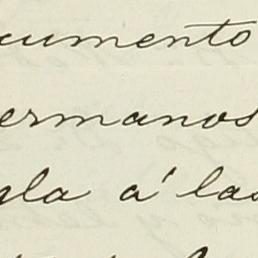 cumento
ermanos
gla á las